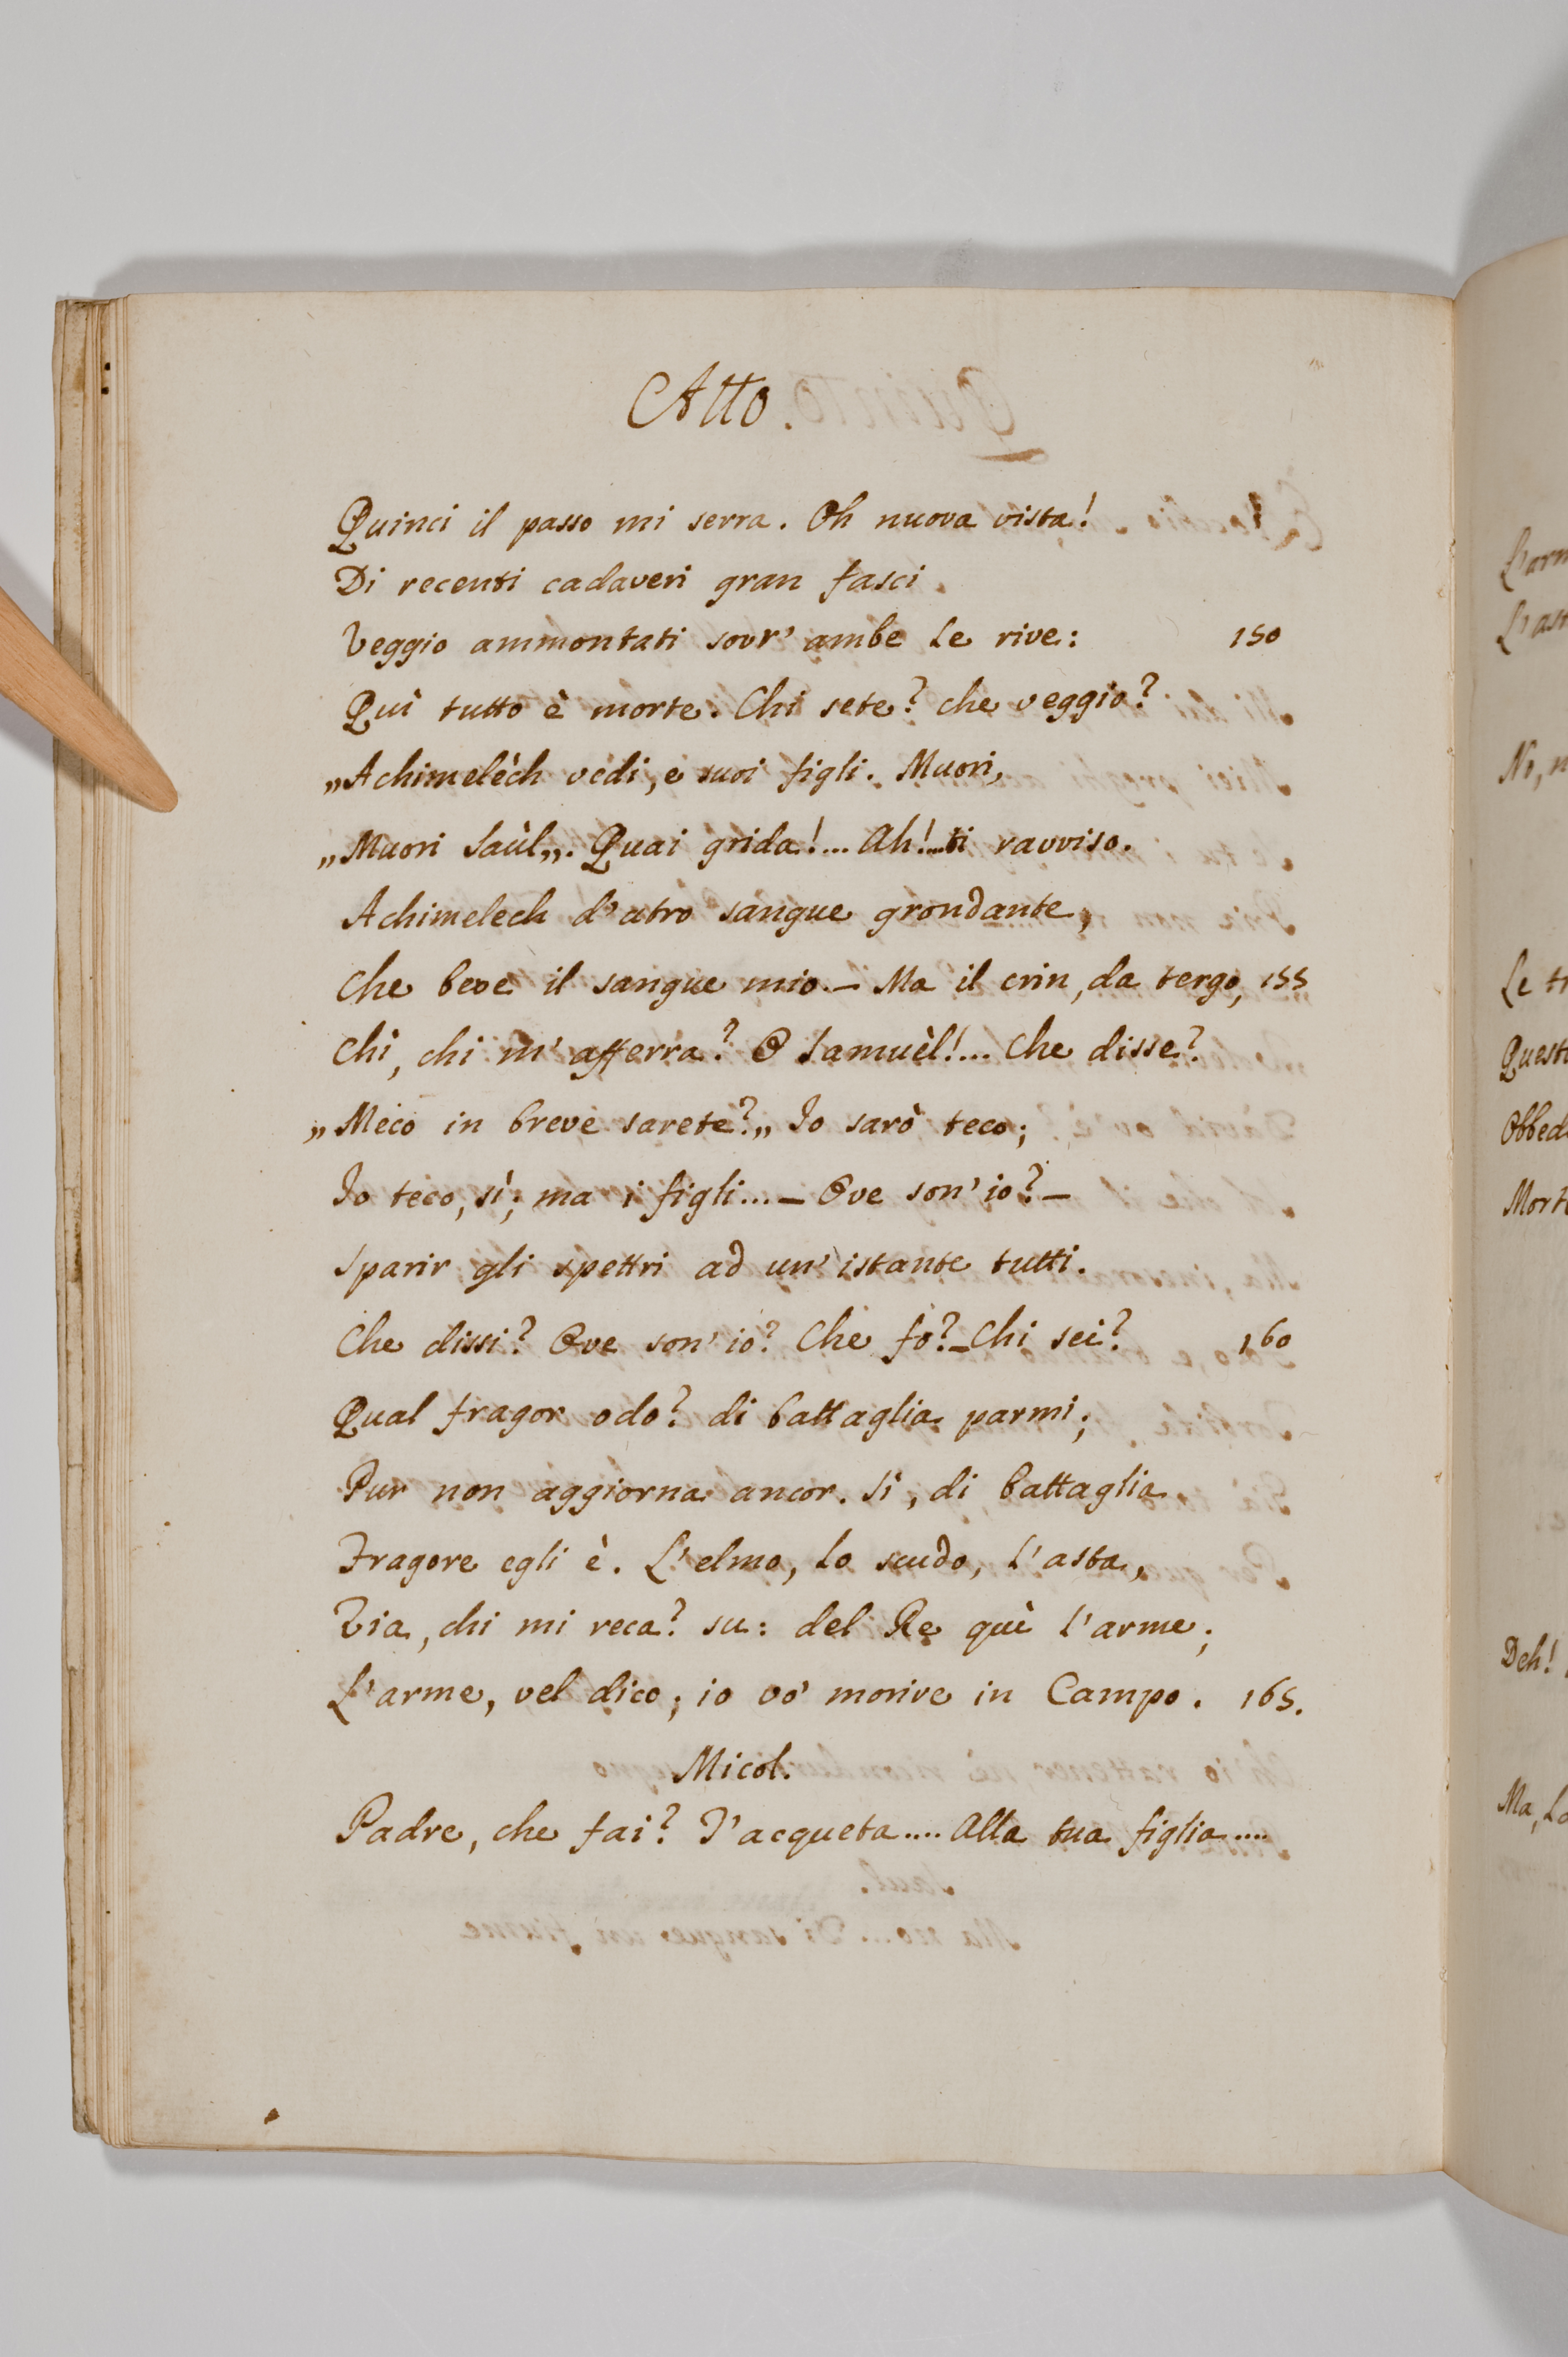 Atto.
Quinci il passo mi serra. Oh nuova vista!
Di recenti cadaveri gran fasci
Veggio ammontati sovr' ambe le rive: 150
Quì tutto è morte. Chi sete? che veggio?
„Achimelèch vedi, e suoi figli. Muori,
„Muori Saùl„. Quai grida!... Ah!...ti ravviso.
Achimelech d'atro sangue grondante,
Che beve il sangue mio.— Ma il crin, da tergo, 155
Chi, chi m' afferra? O Samuèl!... Che disse?
„Meco in breve sarete?„ Io sarò teco;
Io teco, sì; ma i figli...— Ove son' io?—
Sparir gli spettri ad un' istante tutti.
Che dissi? Ove son' io? Che fo?—Chi sei? 160
Qual fragor odo? di battaglia parmi;
Pur non aggiorna ancor. Sì, di battaglia
Fragore egli è. L'elmo, lo scudo, l'asta,
Via, chi mi reca? su: del Re quì l'arme;
L'arme, vel dico; io vo' morire in Campo. 165.
Micol.
Padre, che fai? T'acqueta.... Alla tua figlia....
L'arm
L'as
No, n
Le tr
Quest
Obbed
Mort
Deh!
Ma, la